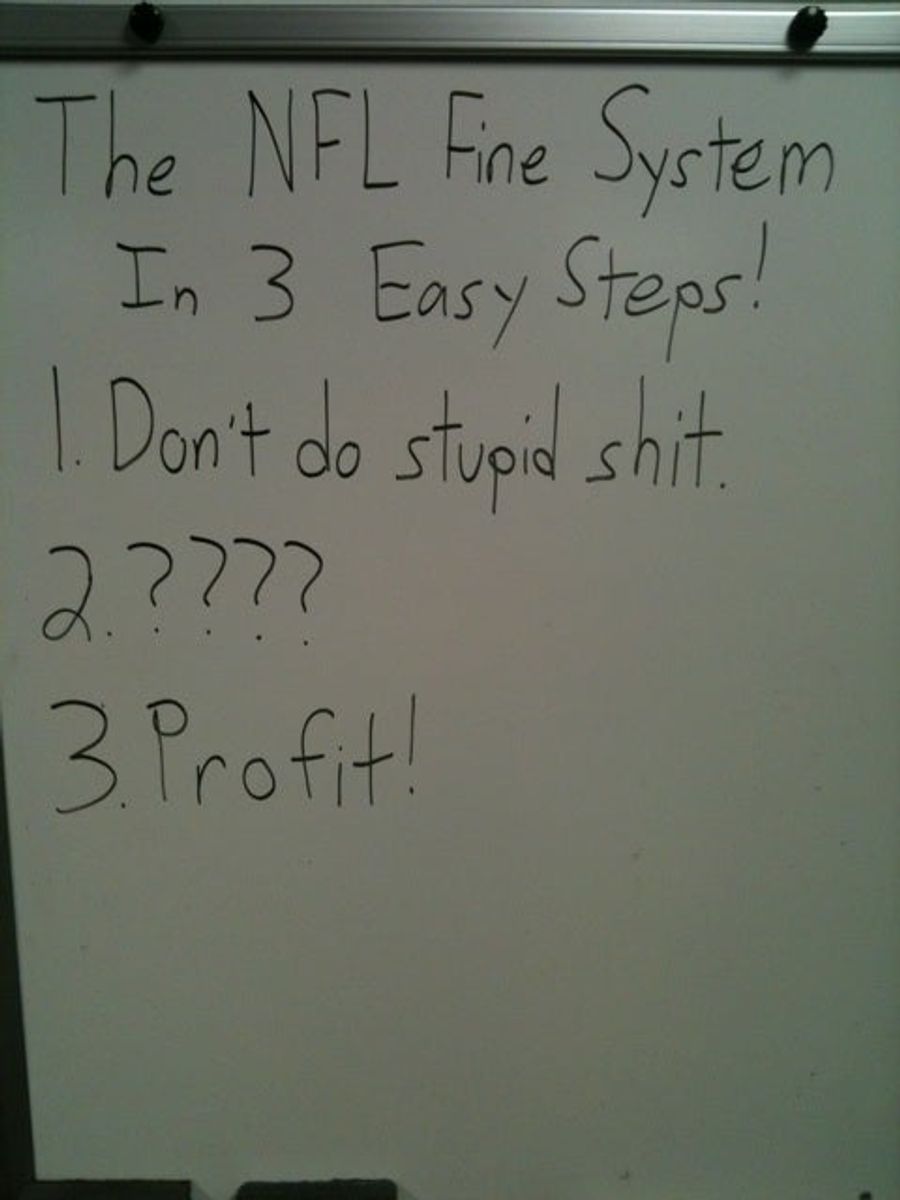 The NFL Fine System
In 3 Easy Steps!
1. Don't do stupid shit.
2. ????
3. Profit!